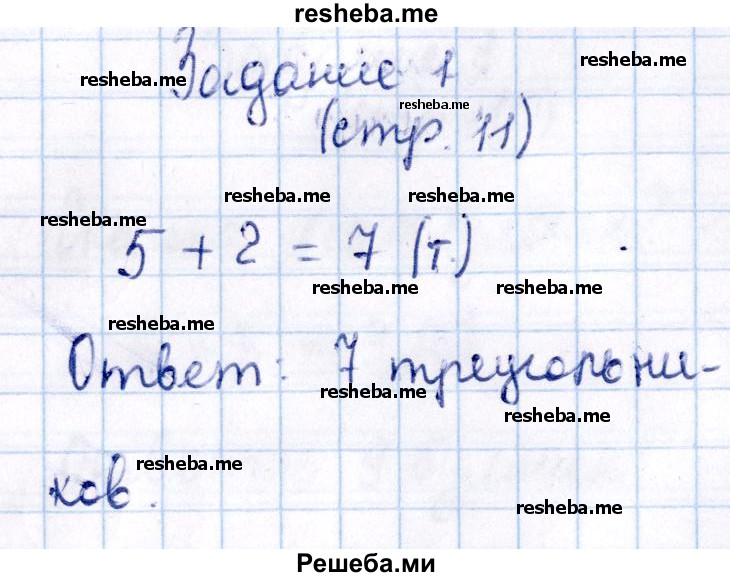 resheba.me
resheba.me
Задание 1
resheba.me
resheba.me
(стр. 11)
resheba.me
resheba.me
resheba.me
5 + 2 = 7 (т.)
resheba.me
resheba.me
resheba.me
Ответ: 7 треугольни-
resheba.me
resheba.me
resheba.me
ков.
resheba.me
Решеба.ми